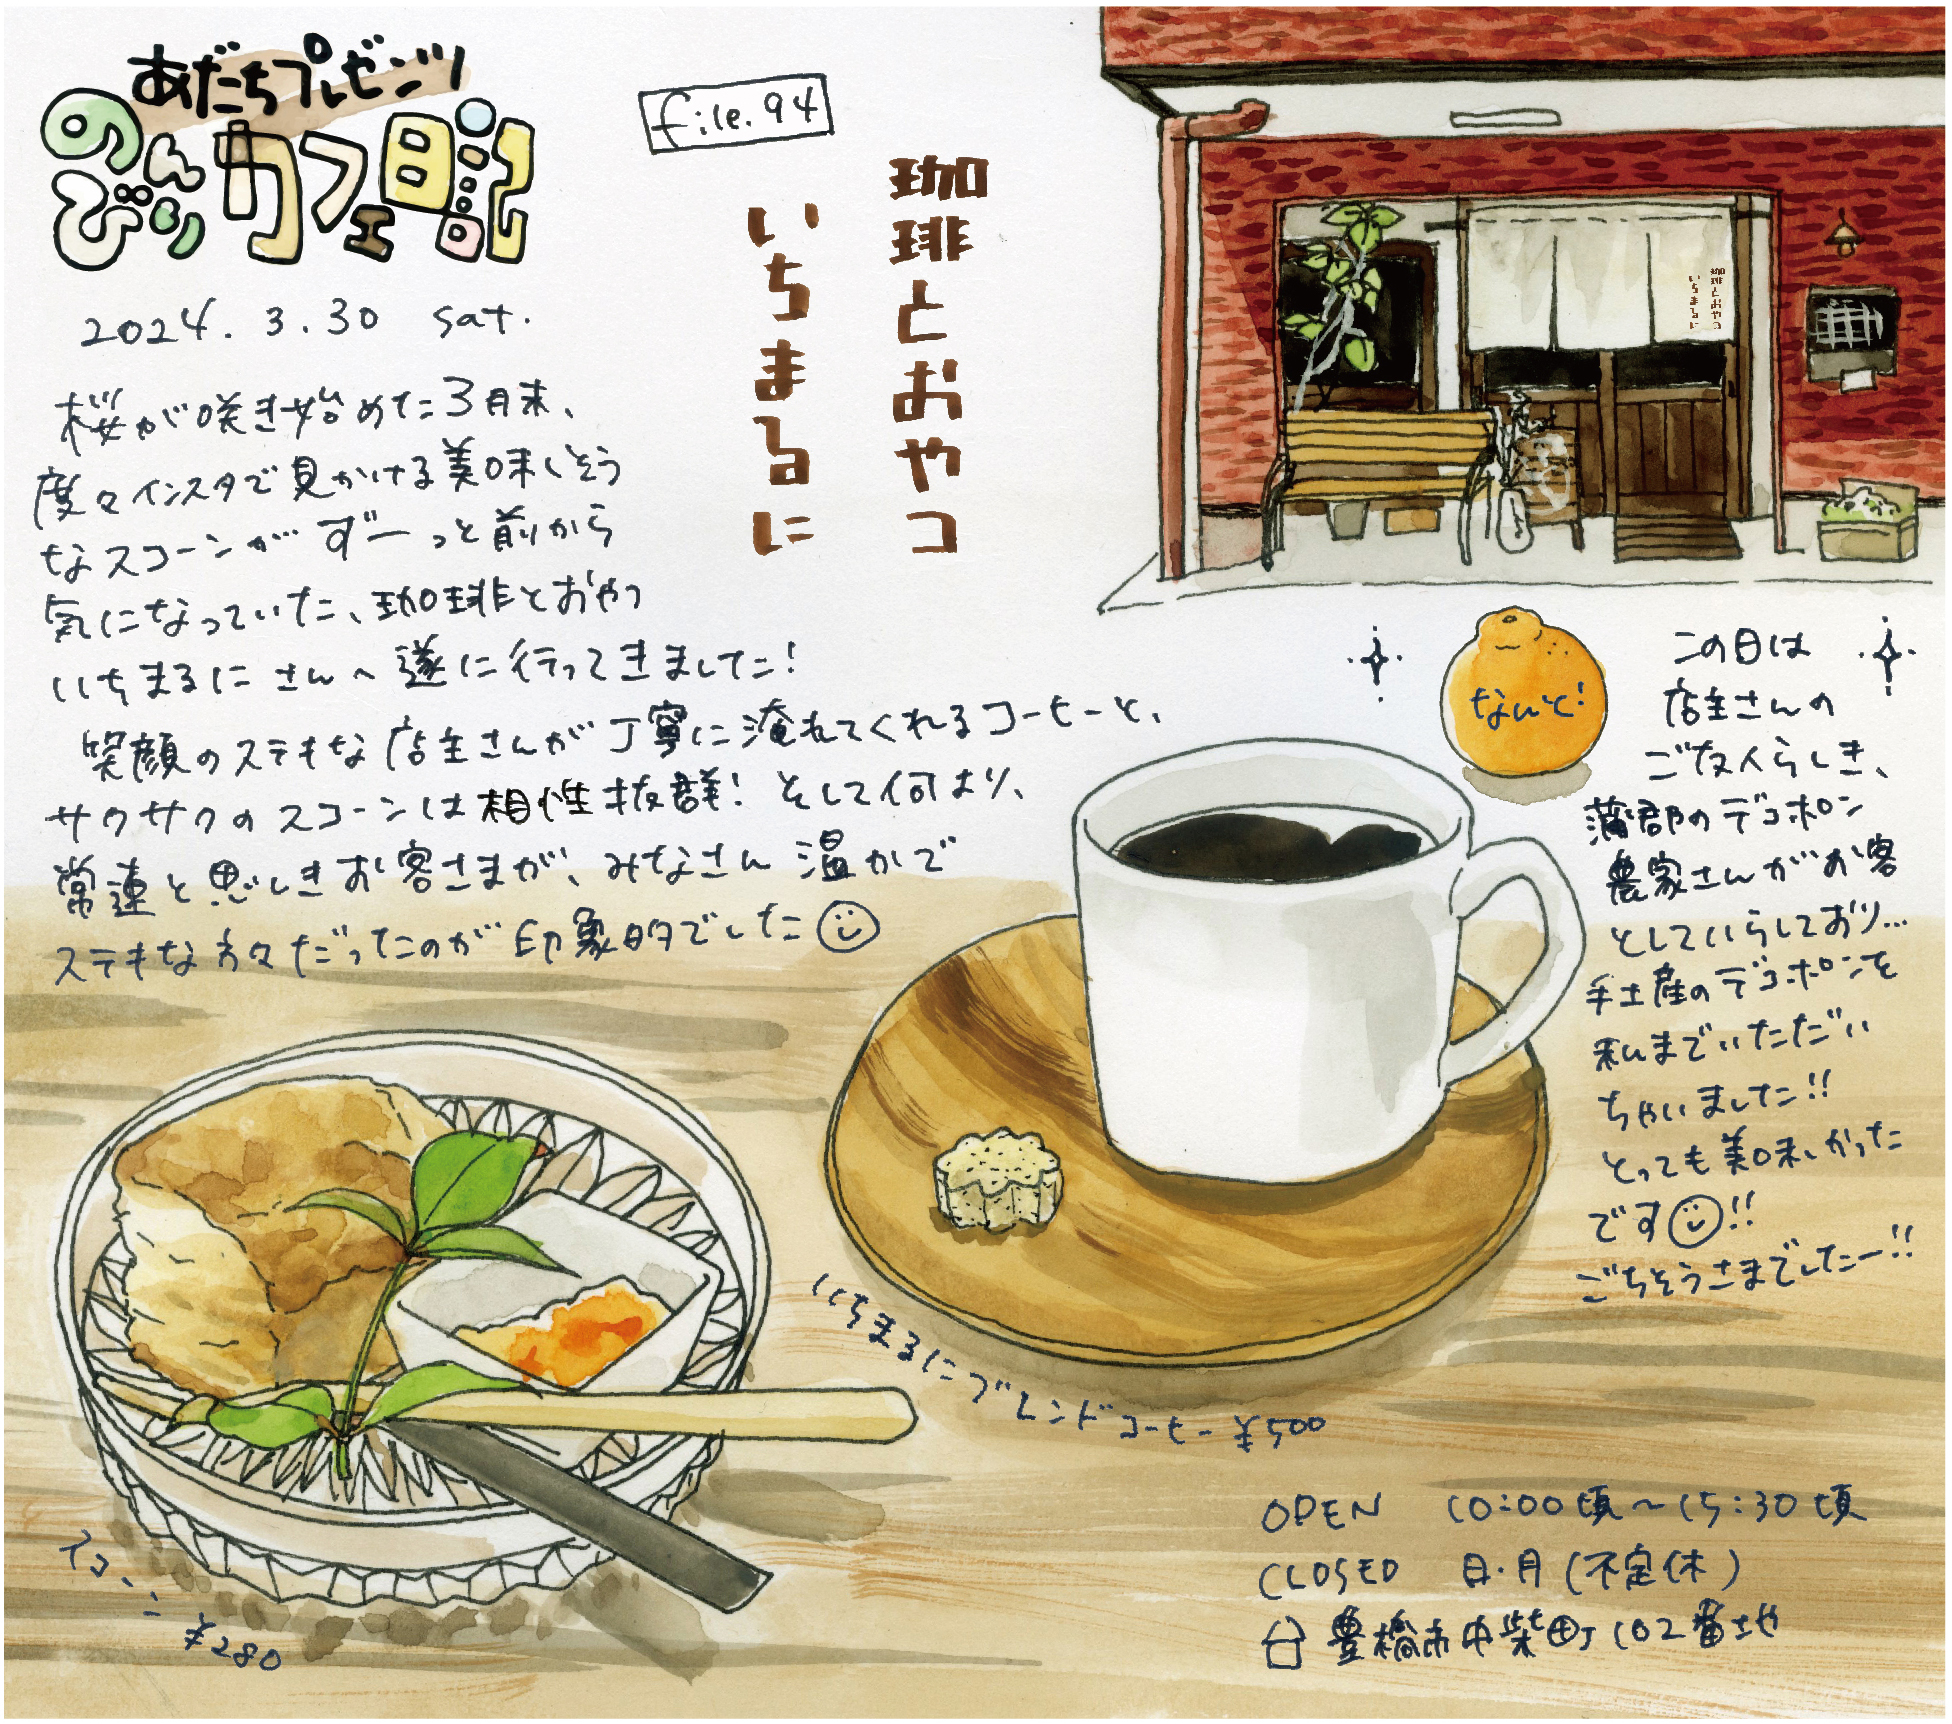 あだちプレゼンツ
のんびりカフェ日記
file.94
珈琲とおやつ
いちまるに
珈琲とおやつ
いちまるに
2024.3.30 sat.
桜が咲き始めた3月末、
度々インスタで見かける美味しそう
なスコーンがずーっと前から
気になっていた、珈琲とおやつ
いちまるにさんへ遂に行ってきました!
笑顔のステキな店主さんが丁寧に淹れてくれるコーヒーと、
サクサクのスコーンは相性抜群! そして何より、
常連と思しきお客さまが、みなさん温かで
ステキな方々だったのが印象的でした
ないと!
この日は
店主さんの
ご友人らしき、
蒲郡のデコポン
農家さんがお客
としていらしており…
手土産のデコポンを
私までいただい
ちゃいました!!
とっても美味しかった
です!!
ごちそうさまでしたー!!
いちまるにブレンドコーヒー ¥500
スコーン ¥280
OPEN 10:00頃〜15:30頃
CLOSED 日・月(不定休)
豊橋市中柴町102番地